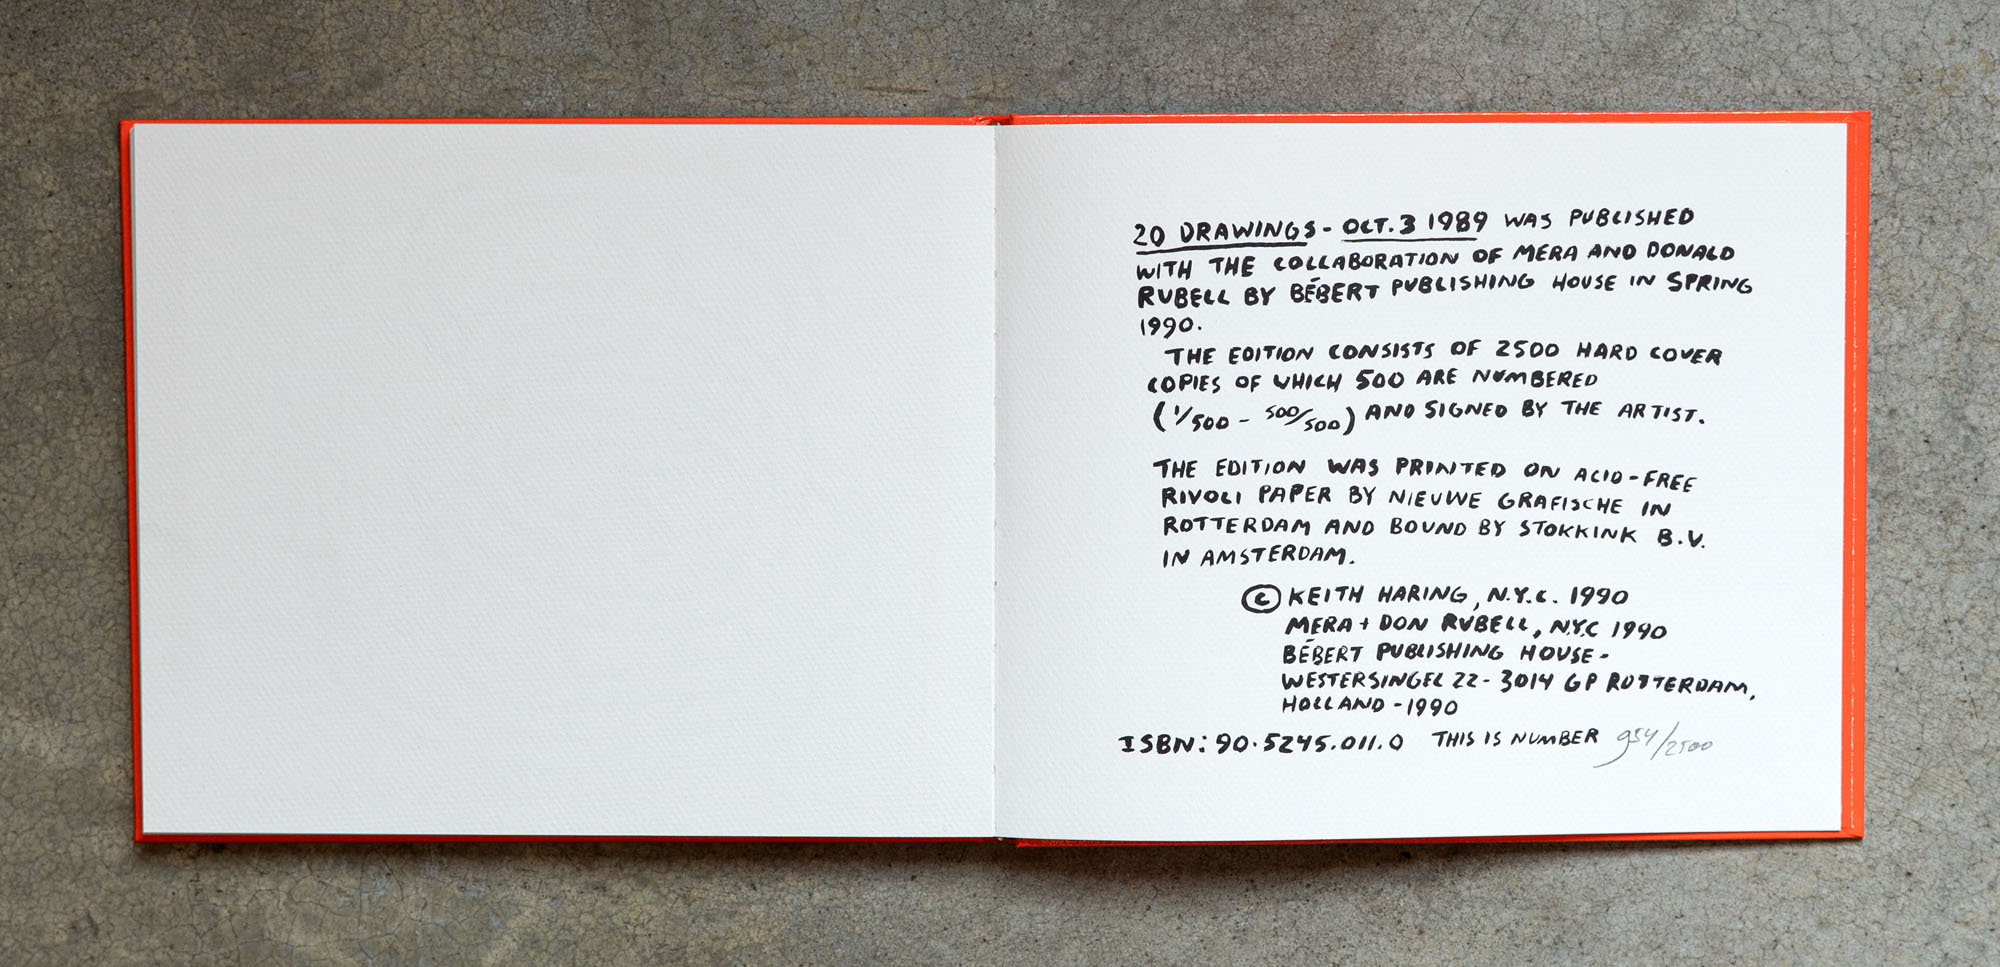 20 DRAWINGS - OCT. 3 1989 WAS PUBLISHED
WITH THE COLLABORATION OF MERA AND DONALD
RUBELL BY BÉBERT PUBLISHING HOUSE IN SPRING
1990.
THE EDITION CONSISTS OF 2500 HARD COVER
COPIES OF WHICH 500 ARE NUMBERED
(1/500 - 500/500) AND SIGNED BY THE ARTIST.
THE EDITION WAS PRINTED ON ACID-FREE
RIVOLI PAPER BY NIEUWE GRAFISCHE IN
ROTTERDAM AND BOUND BY STOKKINK B.V.
IN AMSTERDAM.
© KEITH HARING, N.Y.C. 1990
MERA + DON RUBELL, N.Y.C 1990
BÉBERT PUBLISHING HOUSE -
WESTERSINGEL 22 - 3014 GP ROTTERDAM,
HOLLAND - 1990
ISBN: 90.5245.011.0 THIS IS NUMBER 934/2500